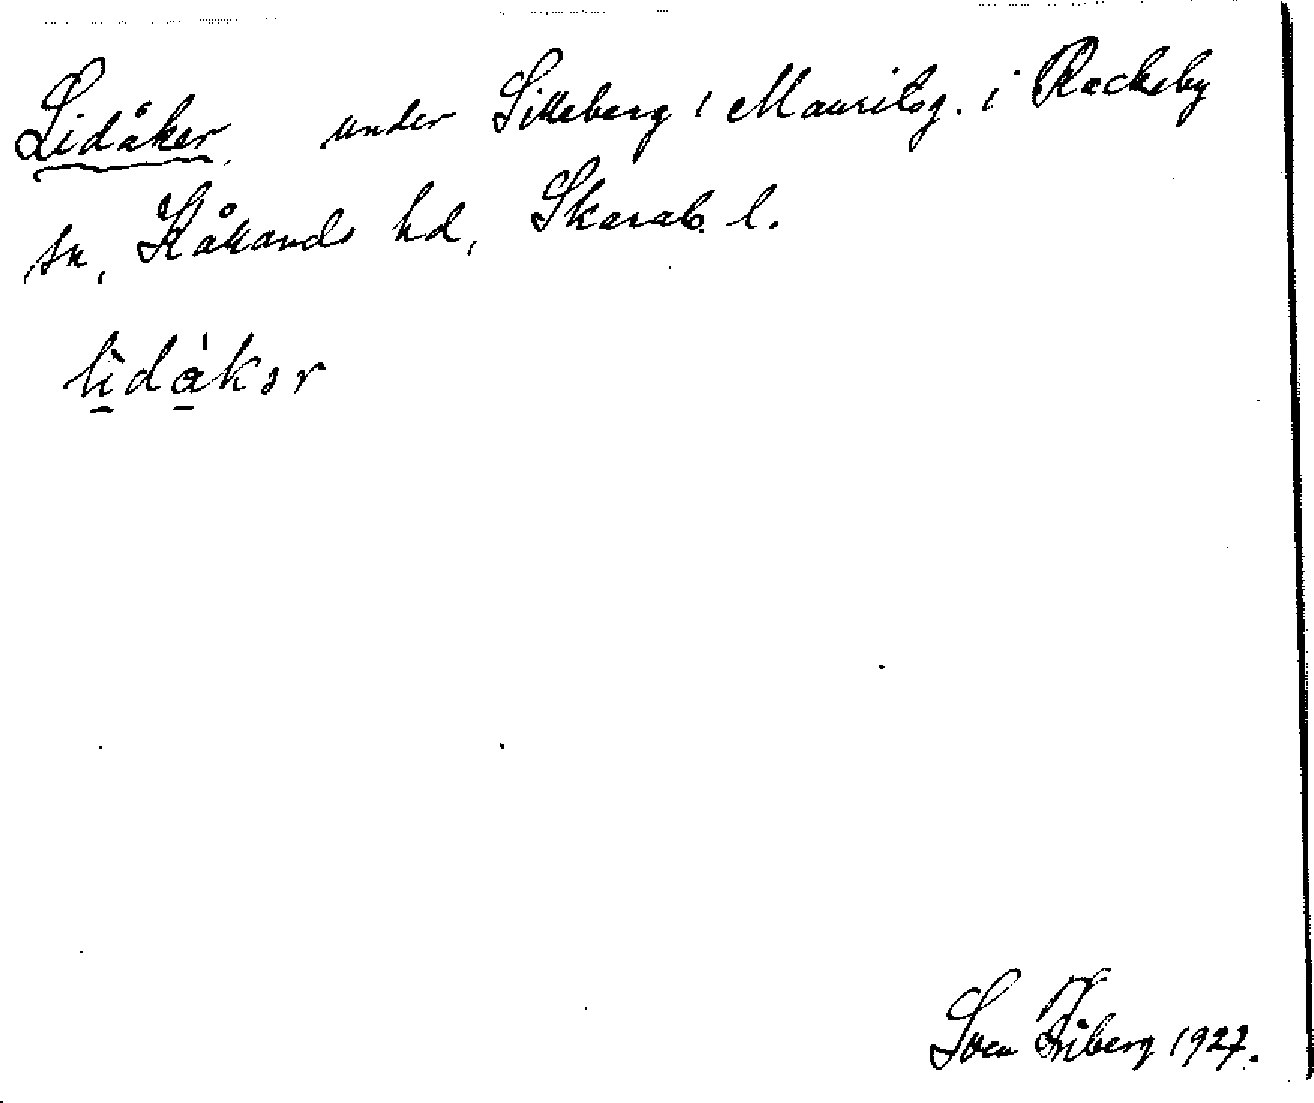 Lidåker, under Silleberg 1 Mauritsg. i Rackeby
sn, Kållands hd, Skarab. l.
lìdåkər
Sven Friberg 1927.